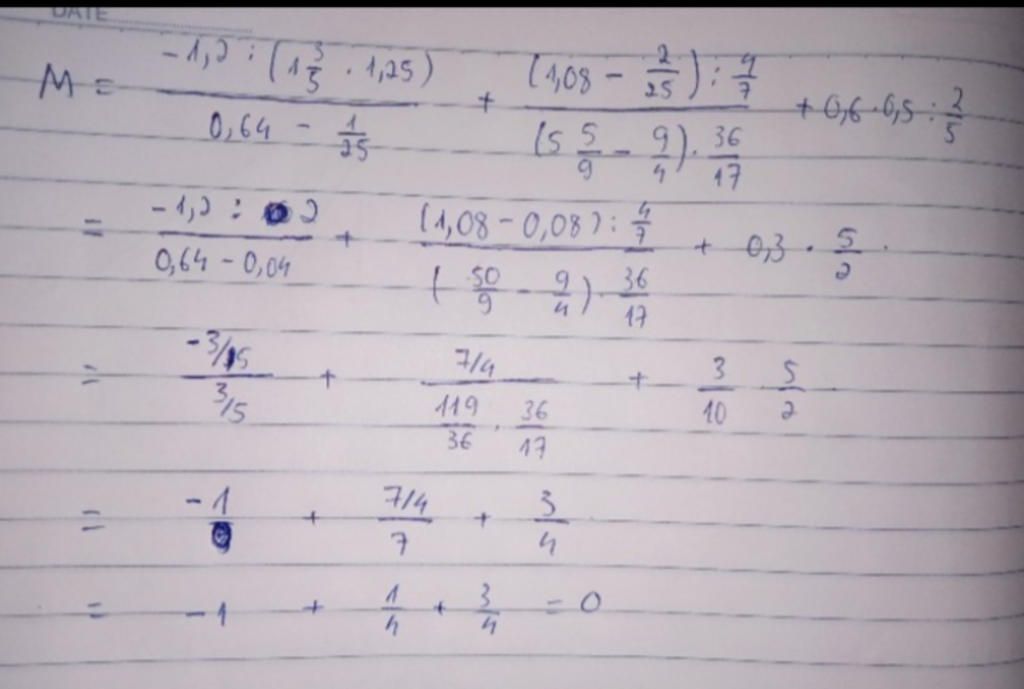 DATE
M = \frac{-1,2 : (1\frac{3}{5} \cdot 1,25)}{0,64 - \frac{1}{25}} + \frac{(1,08 - \frac{2}{25}) : \frac{4}{7}}{(5\frac{5}{9} - \frac{9}{4}) \cdot \frac{36}{17}} + 0,6 \cdot 0,5 : \frac{2}{5}
= \frac{-1,2 : 2}{0,64 - 0,04} + \frac{(1,08 - 0,08) : \frac{4}{7}}{(\frac{50}{9} - \frac{9}{4}) \cdot \frac{36}{17}} + 0,3 \cdot \frac{5}{2}
= \frac{-3/5}{3/5} + \frac{7/4}{\frac{119}{36} \cdot \frac{36}{17}} + \frac{3}{10} \frac{5}{2}
= -1 + \frac{7/4}{7} + \frac{3}{4}
= -1 + \frac{1}{4} + \frac{3}{4} = 0